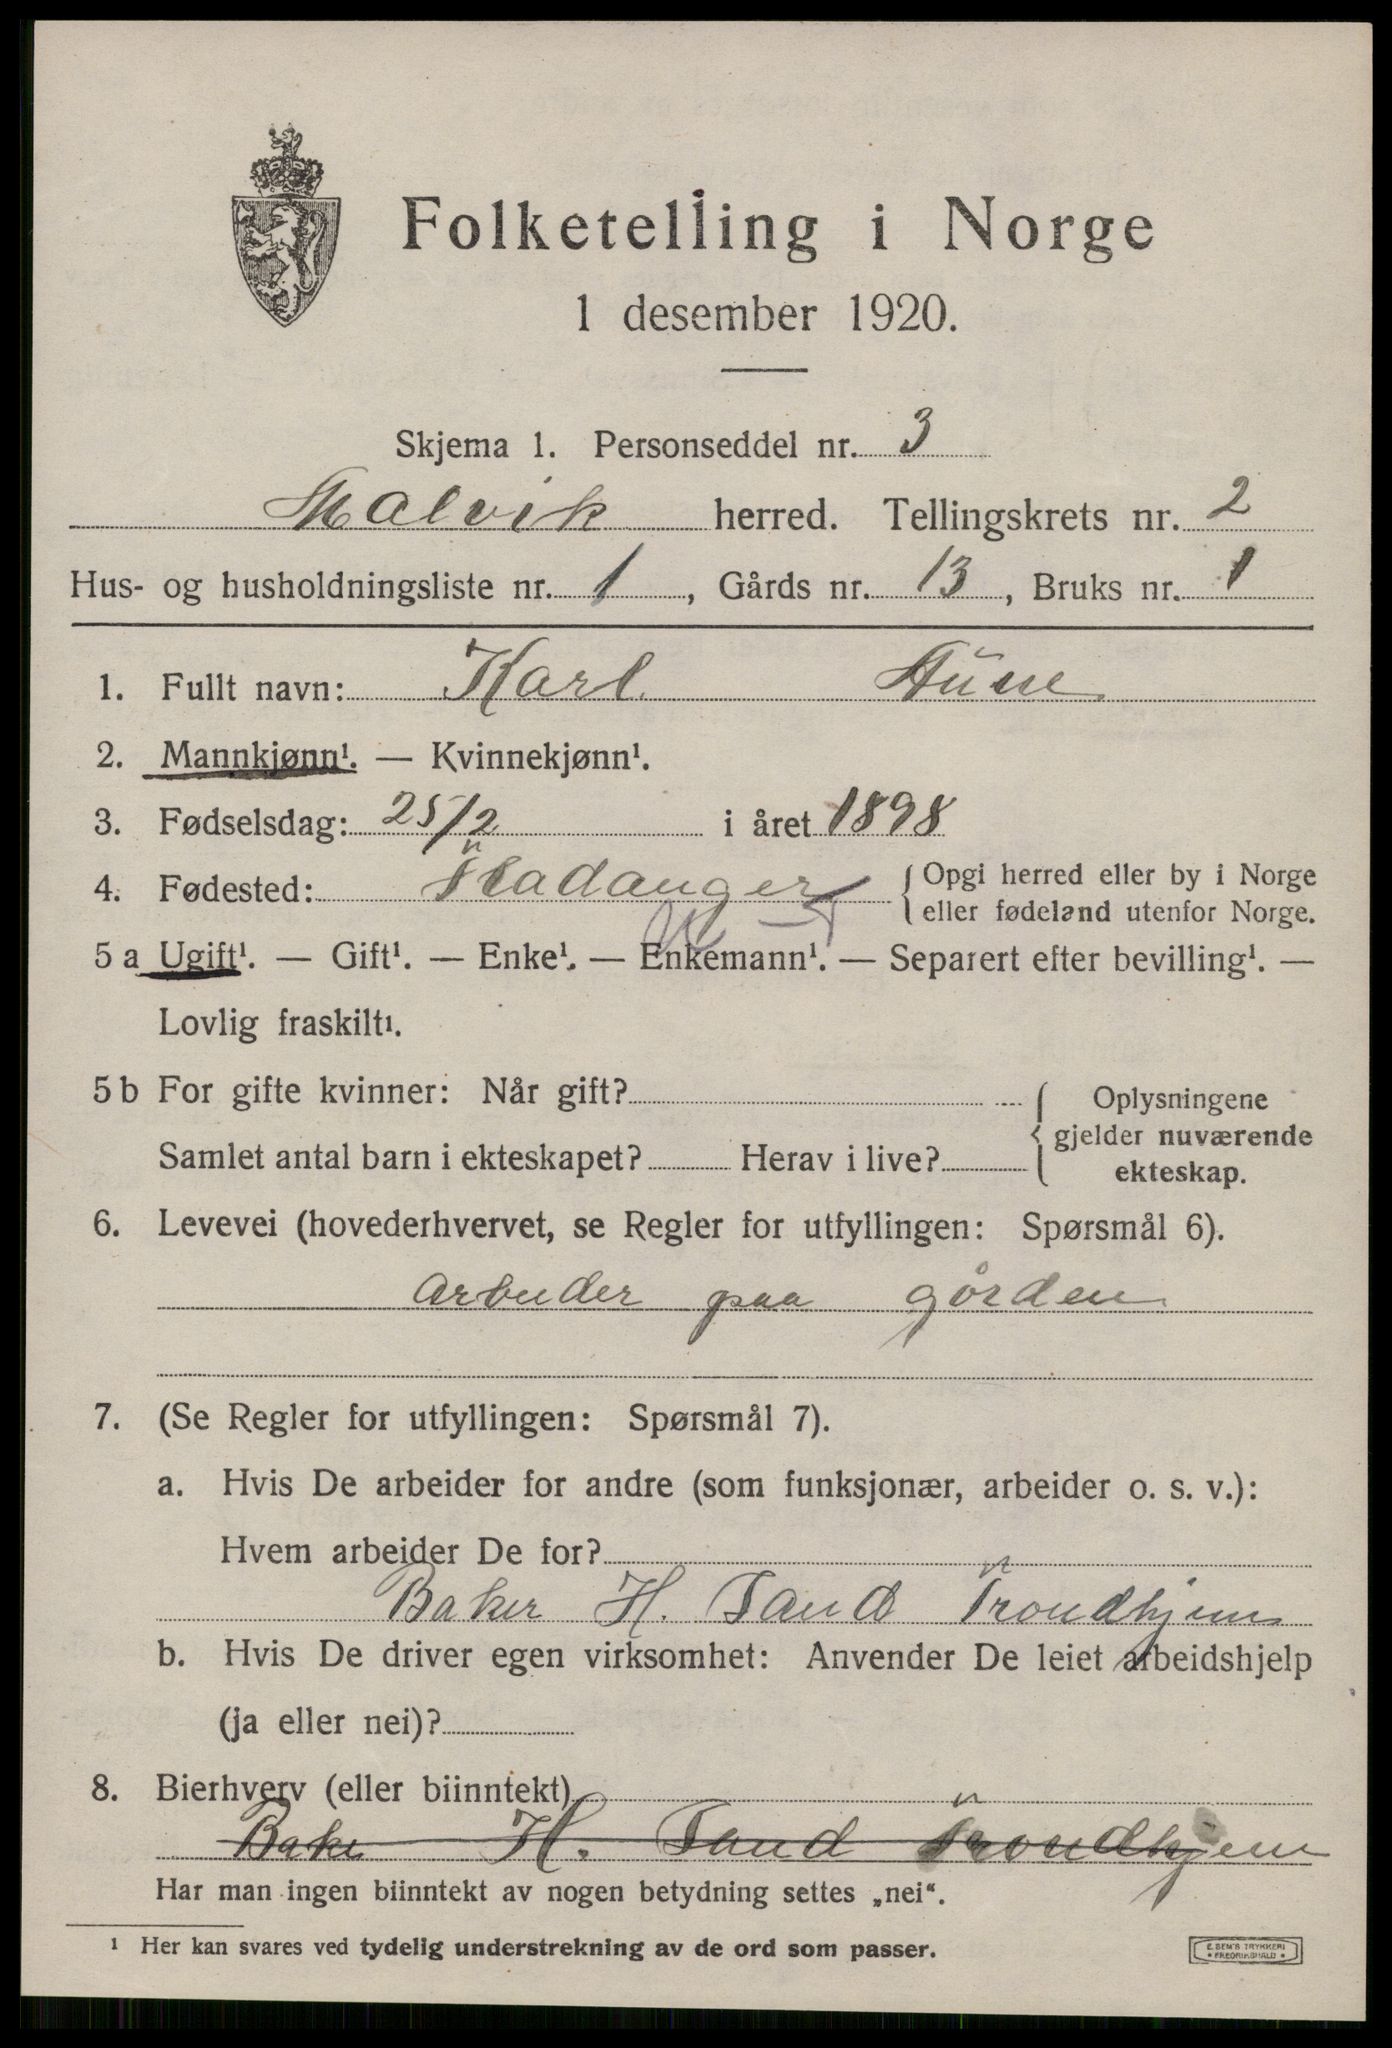 Folketelling i Norge
1 desember 1920.
Skjema 1. Personseddel nr. 3
Malvik herred. Tellingskrets nr. 2
Hus- og husholdningsliste nr. 1, Gårds nr. 13, Bruks nr. 1
1. Fullt navn: Karl
2. Mannkjønn¹. — Kvinnekjønn¹.
3. Fødselsdag: 25/2 i året 1898
4. Fødested: {Opgi herred eller by i Norge
eller fødeland utenfor Norge.
5 a Ugift¹. — Gift¹. — Enke¹. — Enkemann¹. — Separert efter bevilling¹. —
Lovlig fraskilt¹.
5 b For gifte kvinner: Når gift? {Oplysningene
gjelder nuværende
Samlet antal barn i ekteskapet? Herav i live?
ekteskap.
6. Levevei (hovederhvervet, se Regler for utfyllingen: Spørsmål 6).
arbeider paa gården
7. (Se Regler for utfyllingen: Spørsmål 7).
a. Hvis De arbeider for andre (som funksjonær, arbeider o. s. v.):
Hvem arbeider De for?
Baker H. Sand Trondhjem
b. Hvis De driver egen virksomhet: Anvender De leiet arbeidshjelp
(ja eller nei)?
8. Bierhverv (eller biinntekt)
Bake H. Sand Trondhjem
Har man ingen biinntekt av nogen betydning settes „nei“.
¹ Her kan svares ved tydelig understrekning av de ord som passer.
E. SEM'S TRYKKERI
FREDRIKSHALD